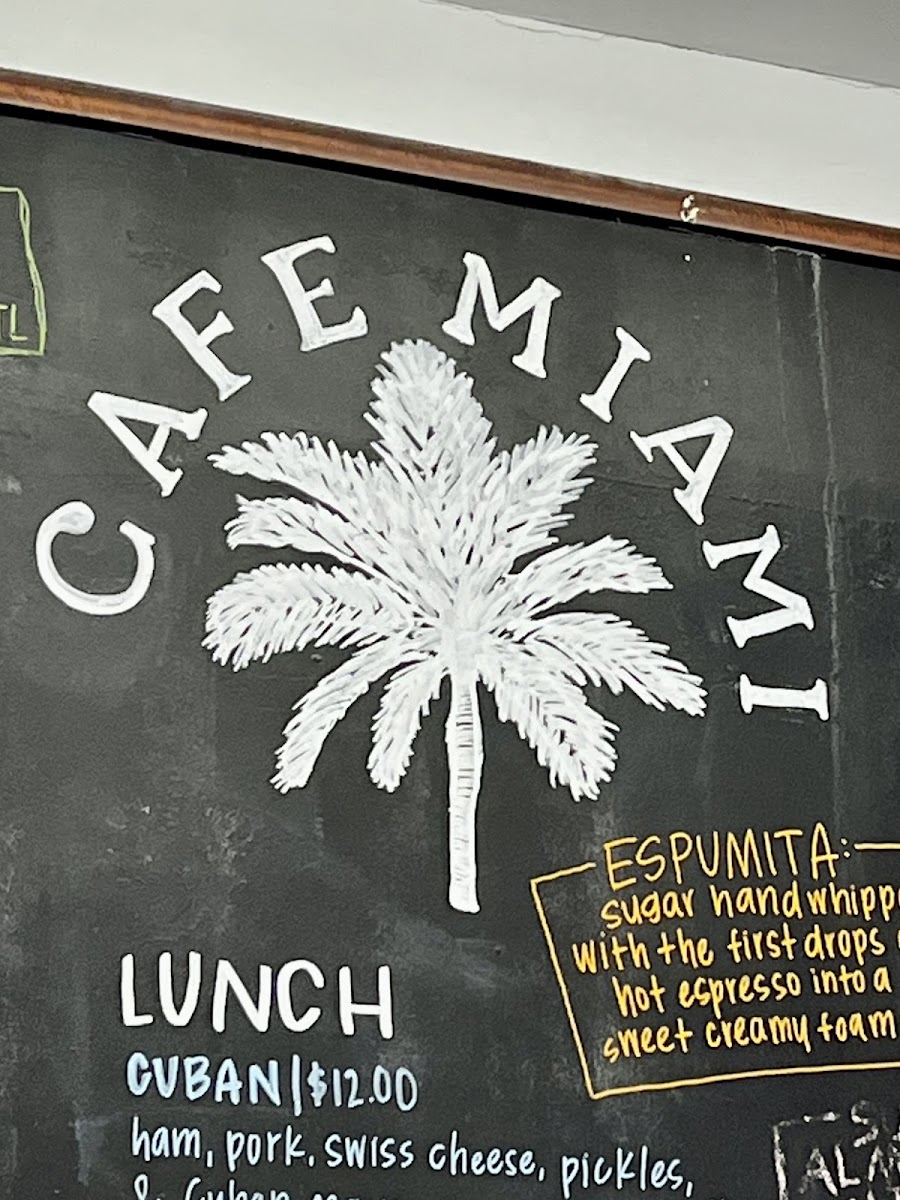 TL
CAFE MIAMI
ESPUMITA:
sugar hand whipp
with the first drops
hot espresso into a
sweet creamy foam
LUNCH
CUBAN | $12.00
ham, pork, swiss cheese, pickles,
& Cuban